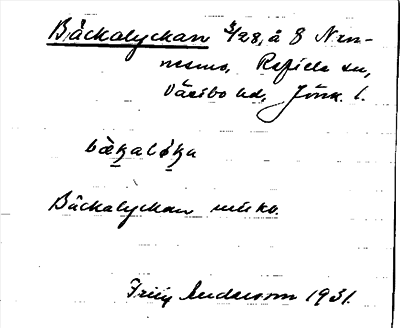 Bäckalyckan 4/28, å 8 Nun-
nesmo, Reftele sn,
Västbo hd, Jönk. l.
bækalöka
Bäckalyckan
Andersson 1931.